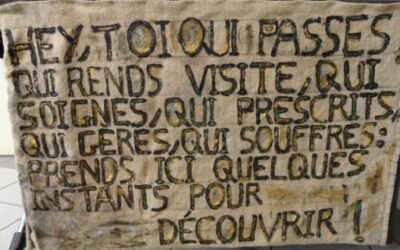 HEY, TOI QUI PASSES,
QUI RENDS VISITE, QUI
SOIGNES, QUI PRESCRITS,
QUI GERES, QUI SOUFFRES:
PRENDS ICI QUELQUES
INSTANTS POUR
DÉCOUVRIR!